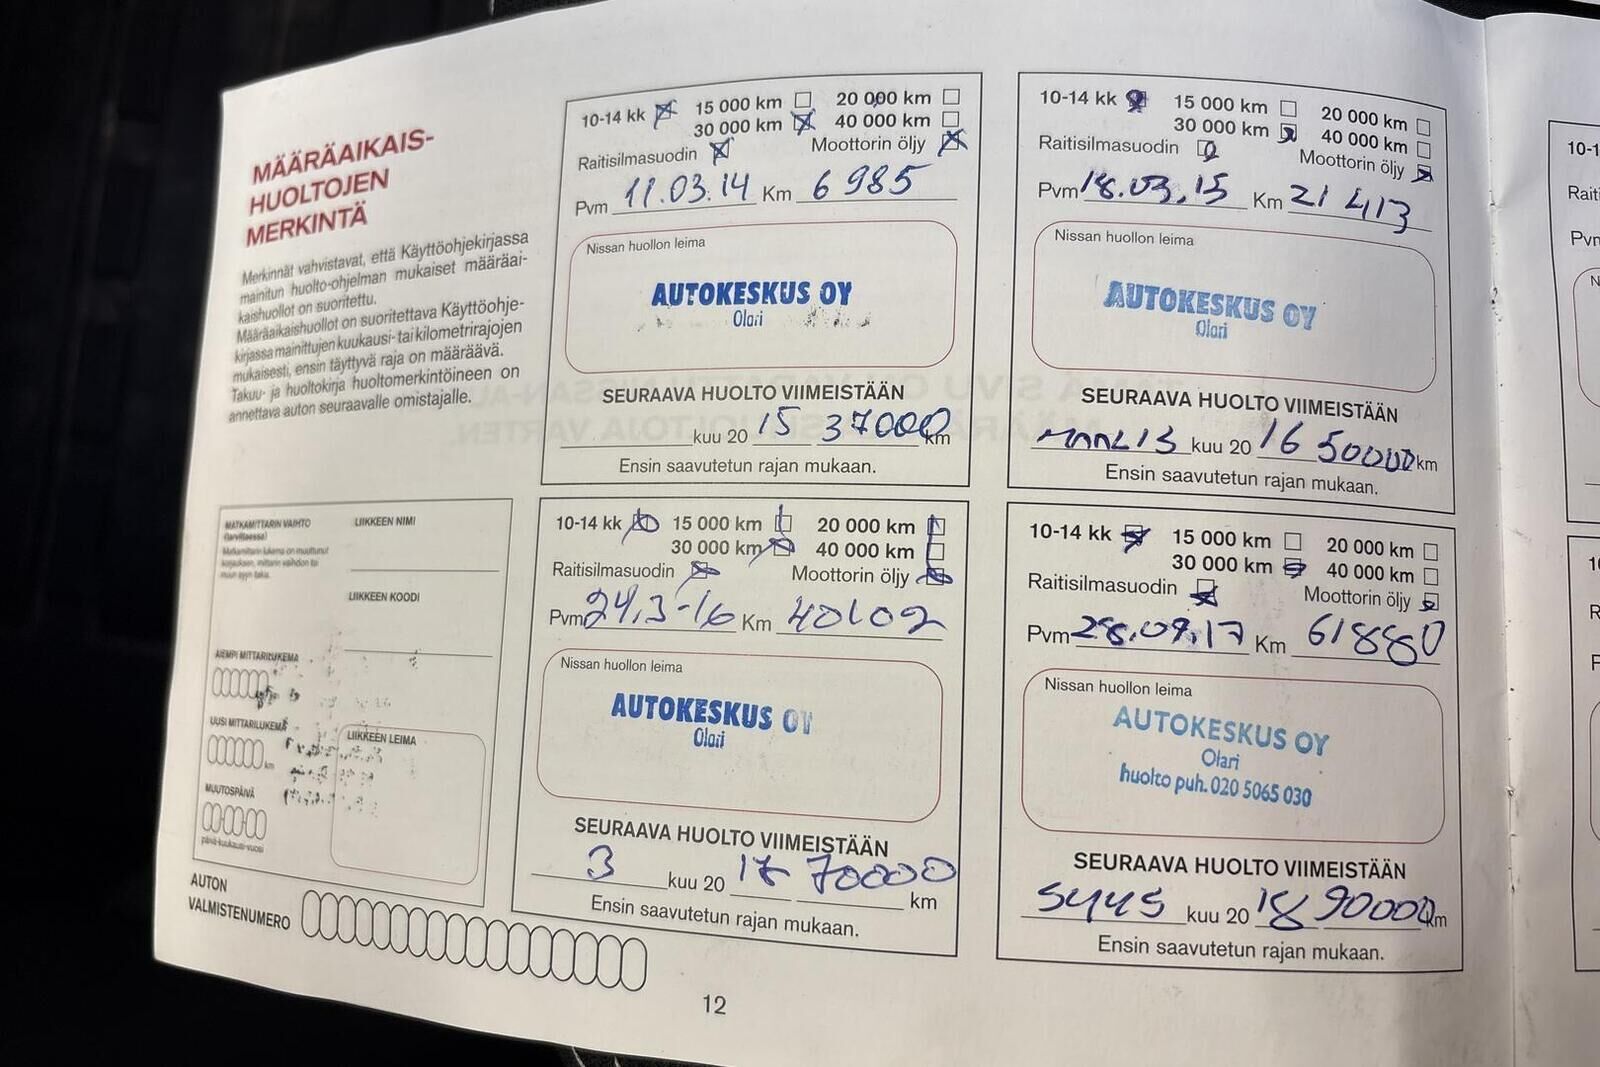 MÄÄRÄAIKAIS-
HUOLTOJEN
MERKINTÄ
Merkinnät vahvistavat, että Käyttöohjekirjassa
mainitun huolto-ohjelman mukaiset määräai-
kaishuollot on suoritettu.
Määräaikaishuollot on suoritettava Käyttöohje-
kirjassa mainittujen kuukausi- tai kilometrirajojen
mukaisesti, ensin täyttyvä raja on määräävä.
Takuu- ja huoltokirja huoltomerkintöineen on
annettava auton seuraavalle omistajalle.
10-14 kk 15 000 km 20 000 km
30 000 km 40 000 km
Raitisilmasuodin Moottorin öljy
Pvm 11.03.14 Km 6 985
Nissan huollon leima
AUTOKESKUS OY
Olari
SEURAAVA HUOLTO VIIMEISTÄÄN
kuu 20 15 37000 km
Ensin saavutetun rajan mukaan.
10-14 kk 15 000 km 20 000 km
30 000 km 40 000 km
Raitisilmasuodin Moottorin öljy
Pvm 18.03.15 Km 21 413
Nissan huollon leima
AUTOKESKUS OY
Olari
SEURAAVA HUOLTO VIIMEISTÄÄN
MAALIS kuu 20 16 50000 km
Ensin saavutetun rajan mukaan.
MATKAMITTARIN VAIHTO
(tarvittaessa)
LIIKKEEN NIMI
LIIKKEEN KOODI
AIEMPI MITTARILUKEMA
UUSI MITTARILUKEMA
km
LIIKKEEN LEIMA
MUUTOSPÄIVÄ
päivä-kuukausi-vuosi
10-14 kk 15 000 km 20 000 km
30 000 km 40 000 km
Raitisilmasuodin Moottorin öljy
Pvm 24.3-16 Km 40102
Nissan huollon leima
AUTOKESKUS OY
Olari
SEURAAVA HUOLTO VIIMEISTÄÄN
3 kuu 20 17 70000 km
Ensin saavutetun rajan mukaan.
10-14 kk 15 000 km 20 000 km
30 000 km 40 000 km
Raitisilmasuodin Moottorin öljy
Pvm 28.09.17 Km 61880
Nissan huollon leima
AUTOKESKUS OY
Olari
huolto puh. 020 5065 030
SEURAAVA HUOLTO VIIMEISTÄÄN
SYYS kuu 20 18 90000 km
Ensin saavutetun rajan mukaan.
AUTON
VALMISTENUMERO
12